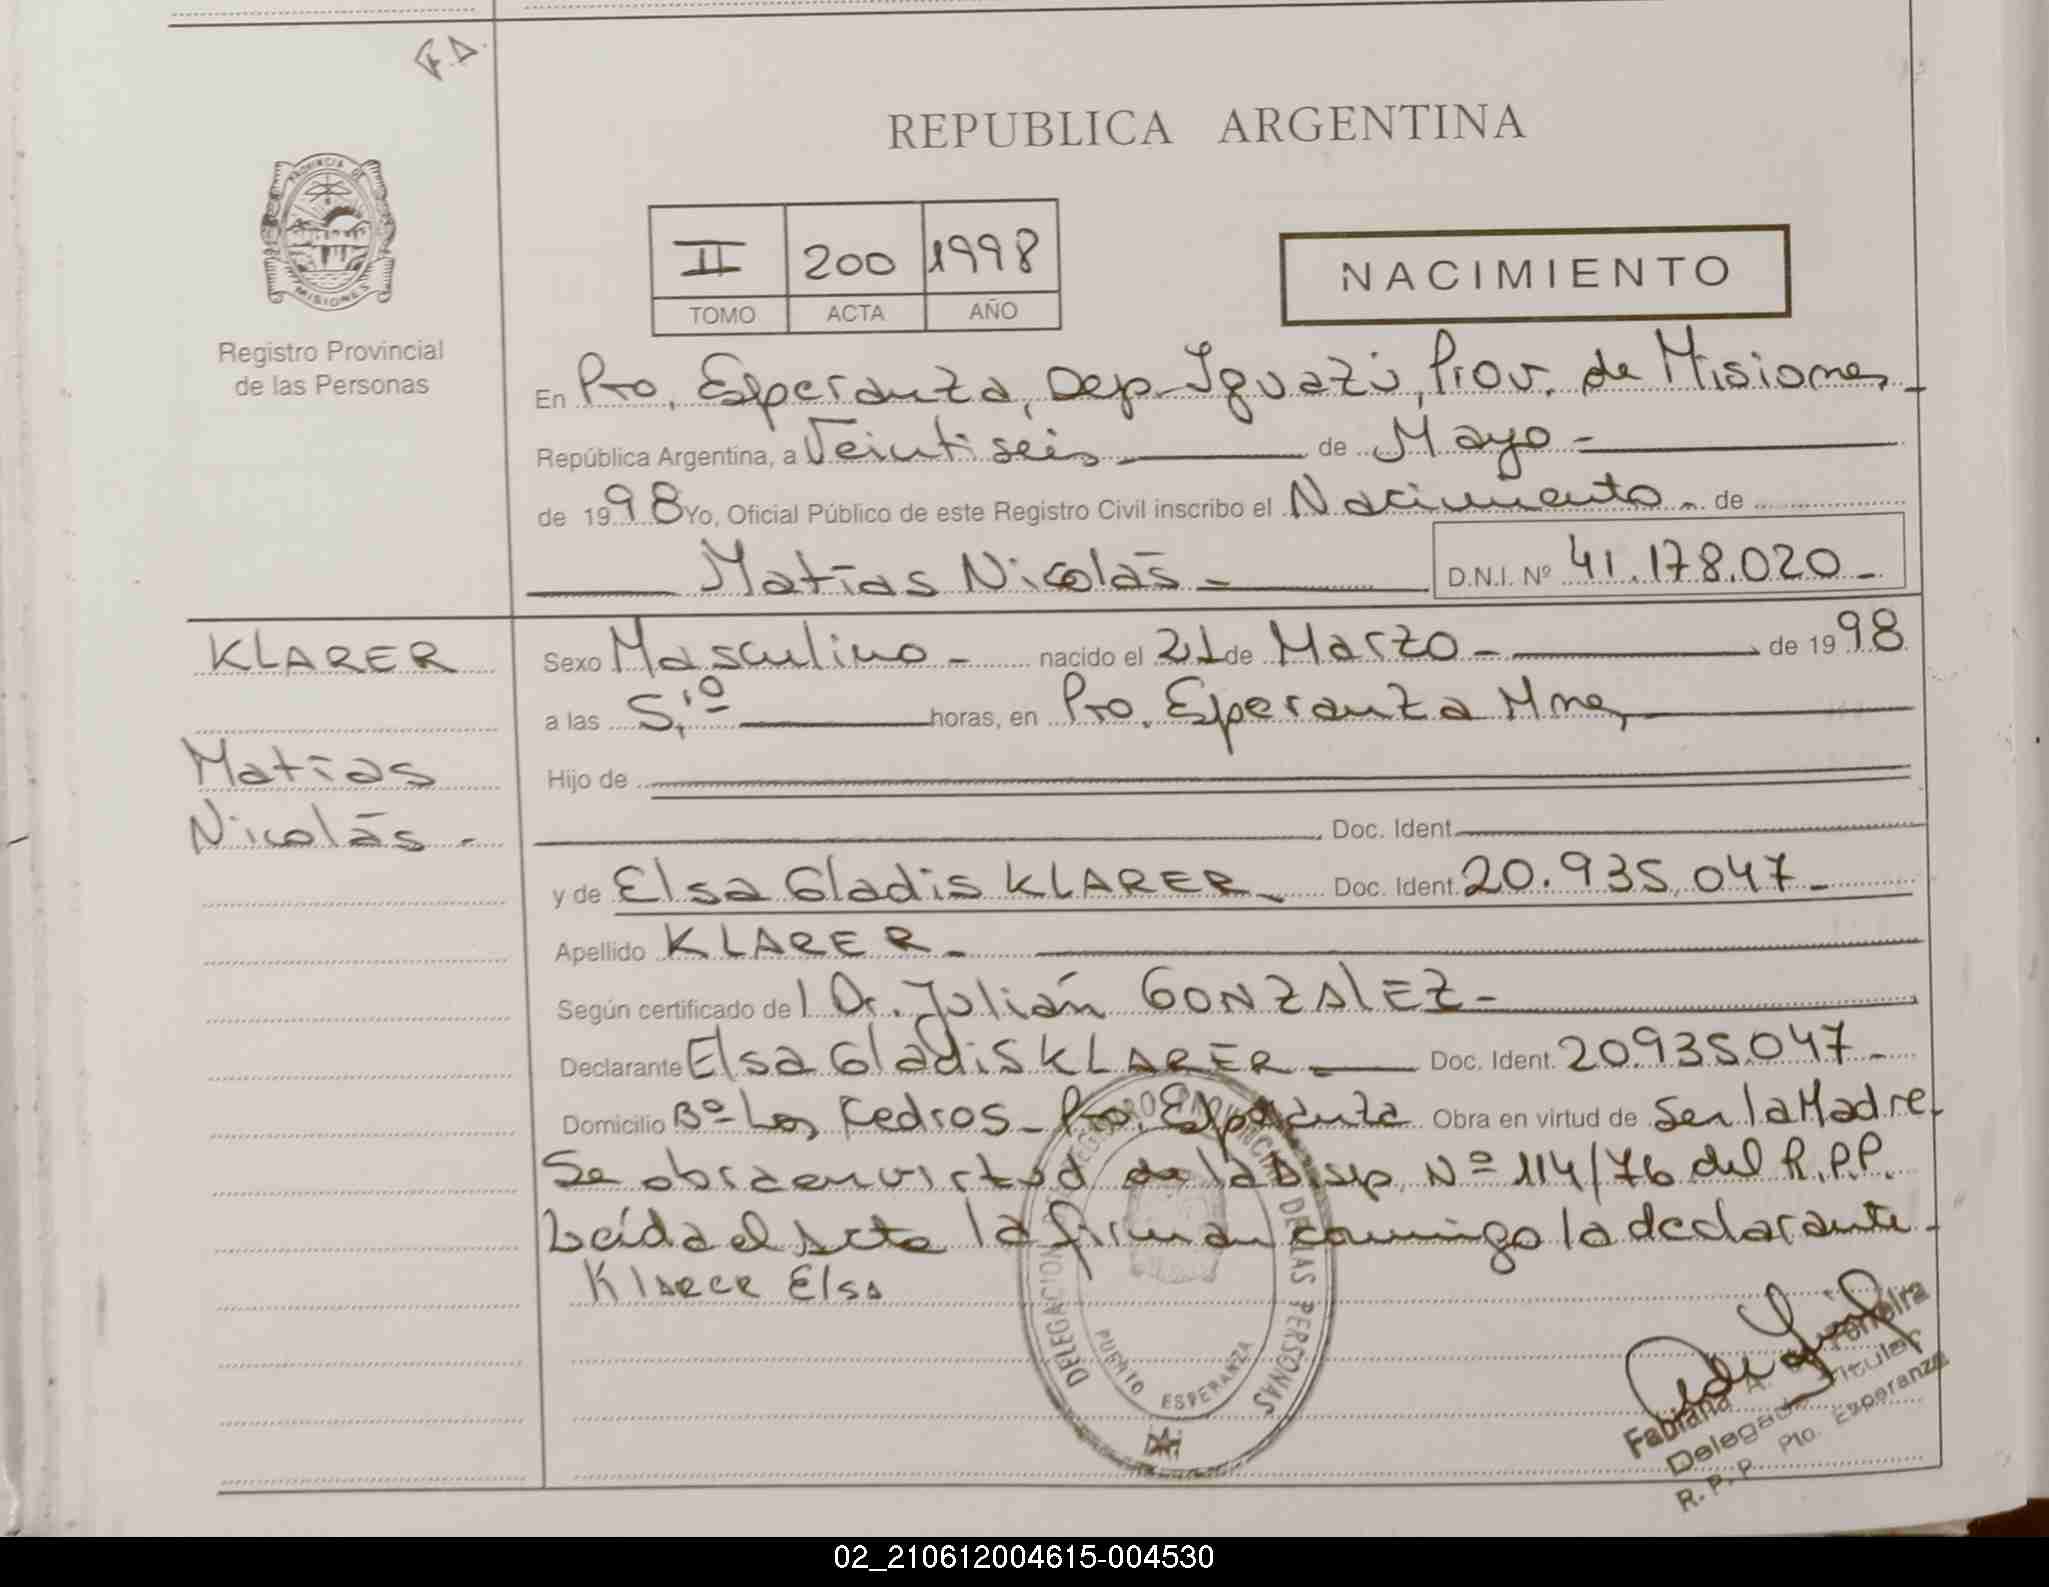 F.D.
REPUBLICA ARGENTINA
PROVINCIA DE
MISIONES
Registro Provincial
de las Personas
II 200 1998
TOMO ACTA AÑO
NACIMIENTO
En Pto. Esperanza, Dep. Iguazú, Prov. de Misiones
República Argentina, a Veintiseis de Mayo
de 1998 Yo, Oficial Público de este Registro Civil inscribo el Nacimiento de
Matías Nicolás
D.N.I. Nº 41.178.020
KLARER
Matías
Nicolás
Sexo Masculino nacido el 21 de Marzo de 1998
a las horas, en Pto. Esperanza Mnes
Hijo de
Doc. Ident.
y de Elsa Gladis KLARER Doc. Ident. 20.935.047
Apellido KLARER
Según certificado del Dr. Julián GONZALEZ
Declarante Elsa Gladis KLARER Doc. Ident. 20.935.047
Domicilio Bº Los Cedros - Pto. Esperanza Obra en virtud de Ser la Madre
Se obra en virtud de la Disp. Nº 114/76 del R.P.P.
Leída el Acta la firman conmigo la declarante
Klarer Elsa
DELEGACION REGISTRO PROVINCIAL DE LAS PERSONAS
PUERTO ESPERANZA
Fabiana A. Ferreira
Delegada Titular
R.P.P. Pto. Esperanza
02_210612004615-004530